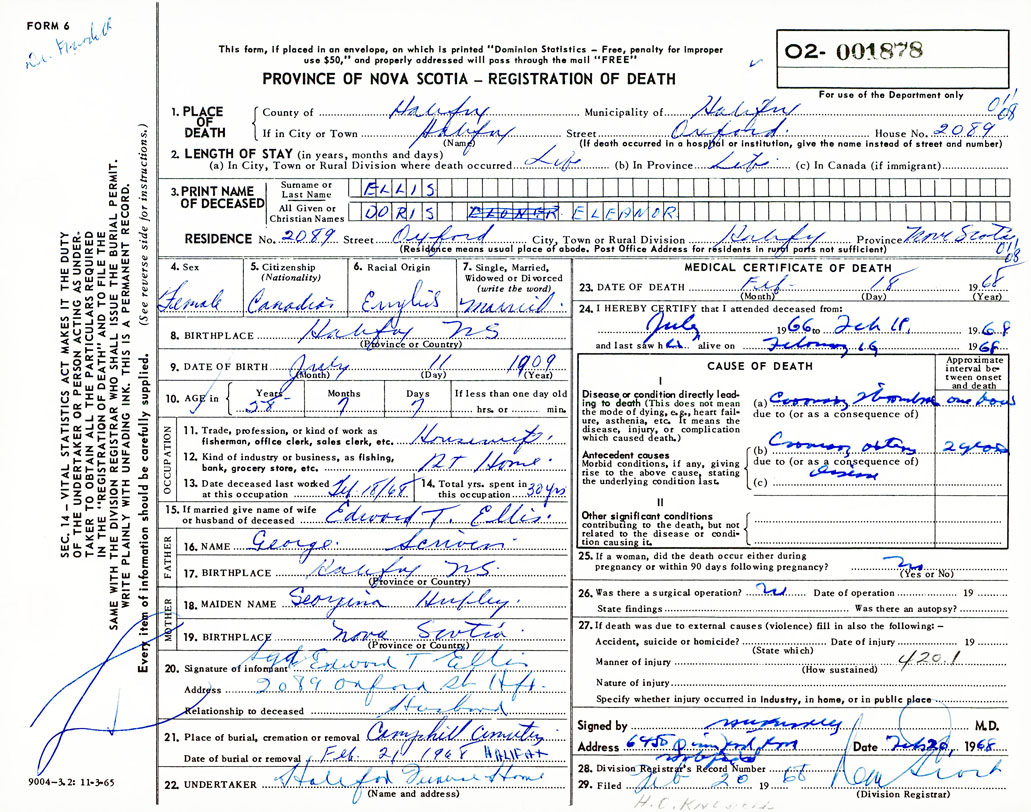 FORM 6
This form, if placed in an envelope, on which is printed "Dominion Statistics – Free, penalty for improper
use $50," and properly addressed will pass through the mail "FREE"
PROVINCE OF NOVA SCOTIA – REGISTRATION OF DEATH
02- 001878
For use of the Department only
SEC. 14 – VITAL STATISTICS ACT MAKES IT THE DUTY
OF THE UNDERTAKER OR PERSON ACTING AS UNDER-
TAKER TO OBTAIN ALL THE PARTICULARS REQUIRED
IN THE "REGISTRATION OF DEATH" AND TO FILE THE
SAME WITH THE DIVISION REGISTRAR WHO SHALL ISSUE THE BURIAL PERMIT.
WRITE PLAINLY WITH UNFADING INK. THIS IS A PERMANENT RECORD.
Every item of information should be carefully supplied. (See reverse side for instructions.)
1. PLACE OF DEATH
County of Halifax Municipality of Halifax
If in City or Town Halifax Street Oxford House No. 2089
(Name) (If death occurred in a hospital or institution, give the name instead of street and number)
2. LENGTH OF STAY (in years, months and days)
(a) In City, Town or Rural Division where death occurred Life (b) In Province Life (c) In Canada (if immigrant)
3. PRINT NAME OF DECEASED
Surname or Last Name ELLIS
All Given or Christian Names DORIS ELEANOR
RESIDENCE No. 2089 Street Oxford City, Town or Rural Division Halifax Province Nova Scotia
(Residence means usual place of abode. Post Office Address for residents in rural parts not sufficient)
4. Sex Female
5. Citizenship (Nationality) Canadian
6. Racial Origin English
7. Single, Married, Widowed or Divorced (write the word) Married
8. BIRTHPLACE Halifax NS
(Province or Country)
9. DATE OF BIRTH July 11 1909
(Month) (Day) (Year)
10. AGE in Years 58 Months 7 Days 7 If less than one day old hrs. or min.
OCCUPATION
11. Trade, profession, or kind of work as fisherman, office clerk, sales clerk, etc. Housewife
12. Kind of industry or business, as fishing, bank, grocery store, etc. At Home
13. Date deceased last worked at this occupation Feb. 18/68 14. Total yrs. spent in this occupation 30 yrs
15. If married give name of wife or husband of deceased Edward T. Ellis
FATHER
16. NAME George
17. BIRTHPLACE Halifax NS
(Province or Country)
MOTHER
18. MAIDEN NAME Georgina
19. BIRTHPLACE Nova Scotia
(Province or Country)
20. Signature of informant Sgd Edward T Ellis
Address 2089 Oxford St Hfx.
Relationship to deceased Husband
21. Place of burial, cremation or removal Camphill Cemetery
Date of burial or removal Feb. 21 1968 HALIFAX
22. UNDERTAKER Halifax Funeral Home
(Name and address)
9004–3.2: 11-3-65
MEDICAL CERTIFICATE OF DEATH
23. DATE OF DEATH Feb 18 1968
(Month) (Day) (Year)
24. I HEREBY CERTIFY that I attended deceased from:
July 1966 to Feb 18, 1968
and last saw her alive on February 16 1968
CAUSE OF DEATH
Approximate interval between onset and death
I
Disease or condition directly leading to death (This does not mean the mode of dying, e.g., heart failure, asthenia, etc. It means the disease, injury, or complication which caused death.)
(a) Coronary Thrombosis one hour
due to (or as a consequence of)
Antecedent causes
Morbid conditions, if any, giving rise to the above cause, stating the underlying condition last.
(b) Coronary artery disease 2 years
due to (or as a consequence of)
(c)
II
Other significant conditions
contributing to the death, but not related to the disease or condition causing it.
25. If a woman, did the death occur either during pregnancy or within 90 days following pregnancy? No
(Yes or No)
26. Was there a surgical operation? No Date of operation 19
State findings Was there an autopsy?
27. If death was due to external causes (violence) fill in also the following: –
Accident, suicide or homicide? Date of injury 19
(State which)
Manner of injury 420.1
(How sustained)
Nature of injury
Specify whether injury occurred in Industry, in home, or in public place
Signed by M.D.
Address 6450 Date Feb 20, 1968
28. Division Registrar's Record Number
29. Filed Feb 20 1968
(Division Registrar)